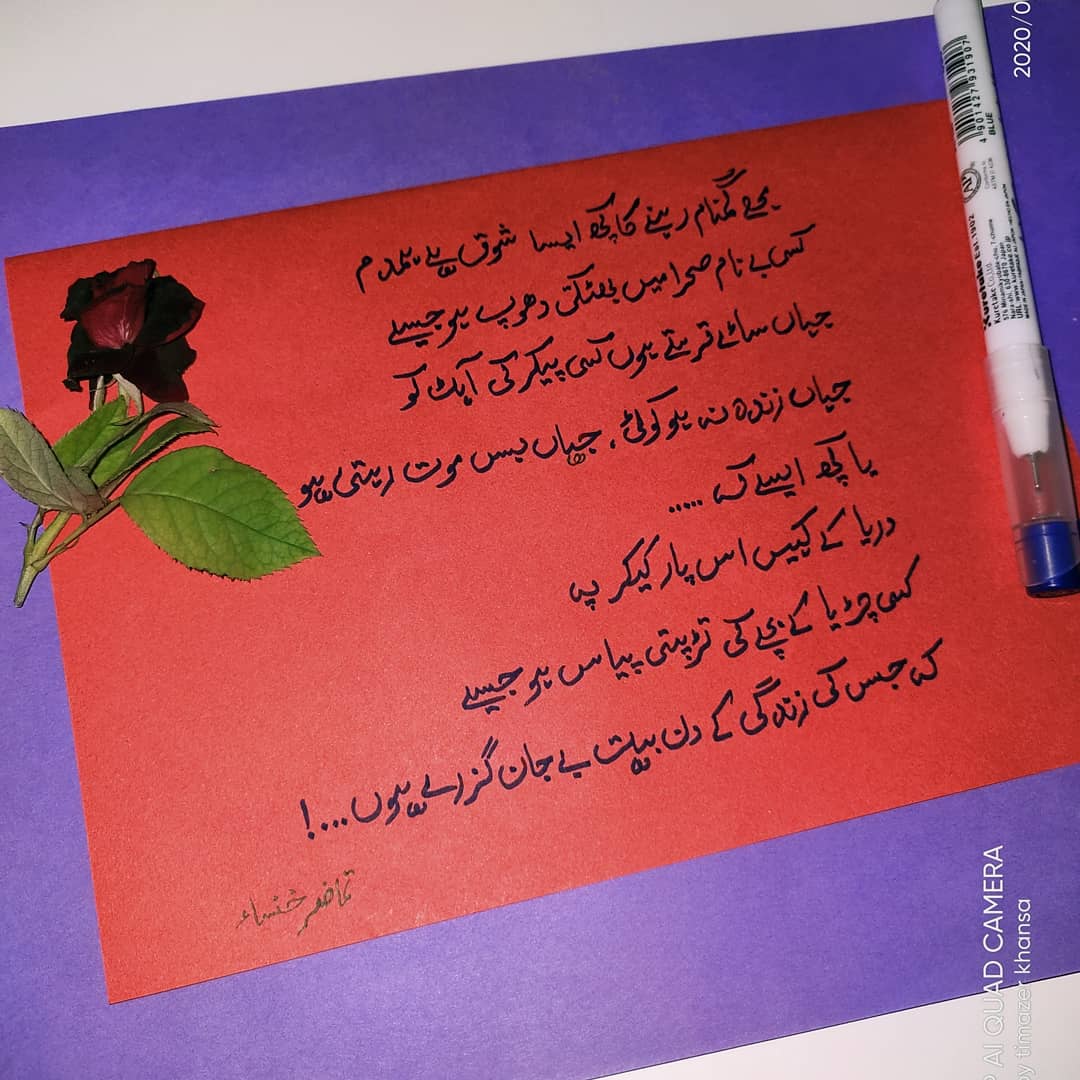 مجھے گمنام رہنے کا کچھ ایسا شوق ہے ہمدم
کسی بے نام صحرا میں بھٹکتی دھوپ ہو جیسے
جہاں سائے ترستے ہوں کسی پیکر کی آہٹ کو
جہاں زندہ نہ ہو کوئی، جہاں بس موت رہتی ہو
یا کچھ ایسے کہ .....
دریا کے کہیں اس پار کیکر پہ
کسی چڑیا کے بچے کی تڑپتی پیاس ہو جیسے
کہ جس کی زندگی کے دن بہت بے جان گزرے ہوں...!
تماضر خنساء
4 901427 931907
BLUE
AP
Kuretake Est.1902
Kuretake CO.,LTD.
2020/0
AI QUAD CAMERA
by timazer khansa